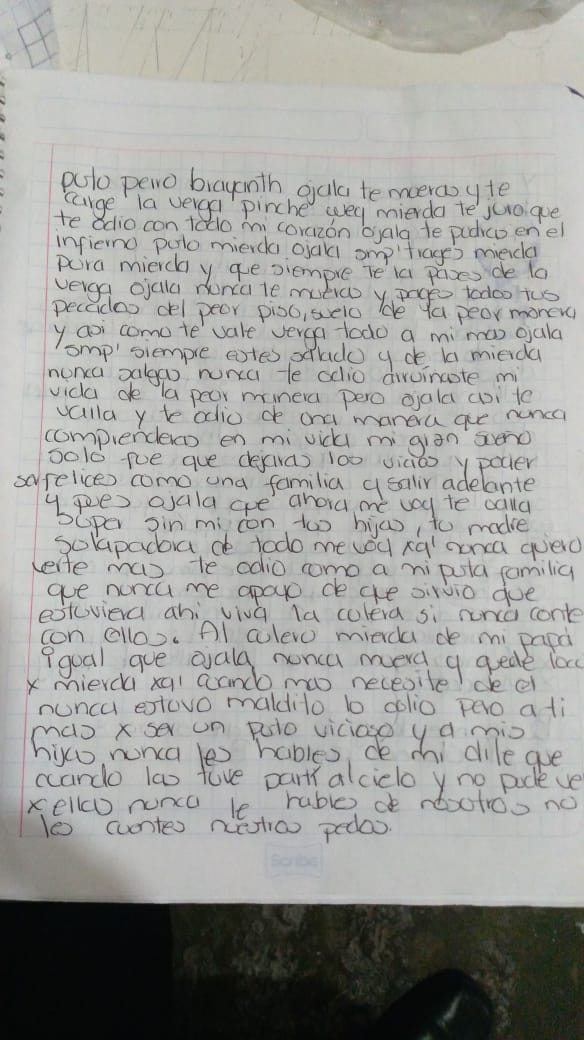 puto perro brayanth ojala te mueras y te
carge la verga pinche wey mierda te juro que
te odio con todo mi corazón ojala te pudras en el
infierno puto mierda ojala smp' trages mierda
pura mierda y que siempre te la pases de la
verga ojala nunca te mueras y pages todos tus
peccidos del peor piso, suelo de la peor manera
y asi como te vale verga todo a mi mas ojala
smp' siempre estes salado y de la mierda
nunca salgas nunca te odio arruinaste mi
vida de la peor manera pero ojala asi te
valla y te odio de una manera que nunca
comprenderas en mi vida mi gran sueño
solo fue que dejaras los vicios y poder
ser felices como una familia y salir adelante
y pues ojala que ahora me voy te valla
super sin mi con tus hijas, tu madre
solapadora de todo me voy xq' nunca quiero
verte mas te odio como a mi puta familia
que nunca me apoyo de que sirvio que
estuviera ahi viva la culera si nunca conte
con ellos. Al culero mierda de mi papá
igual que ojala nunca muera y quede loco
x mierda xq' cuando mas necesite de el
nunca estuvo maldito lo odio pero a ti
mas x ser un puto vicioso y a mis
hijas nunca les hables de mi dile que
cuando las tuve parti al cielo y no pude ver
x ellas nunca le hables de nosotros no
les cuentes nuestros pedos.
Scribe